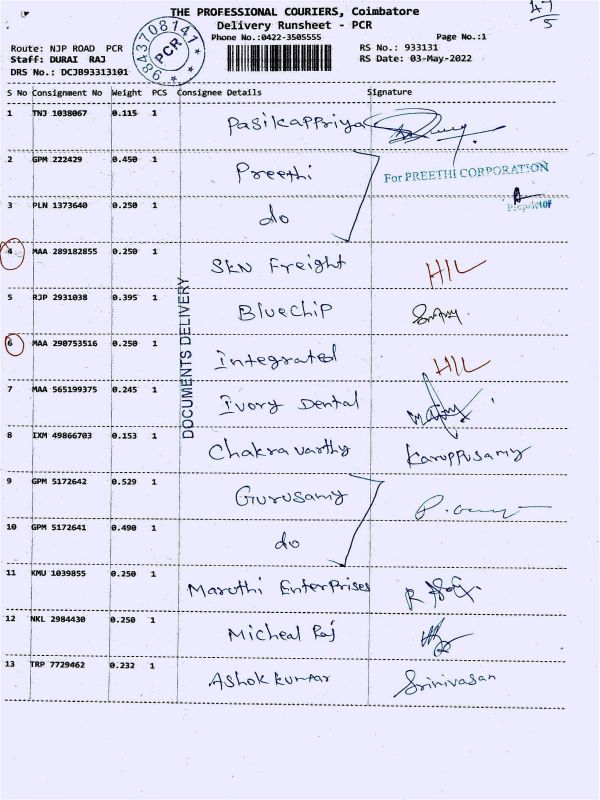 47
5
THE PROFESSIONAL COURIERS, Coimbatore
Delivery Runsheet - PCR
Phone No.:0422-3505555 Page No.:1
Route: NJP ROAD PCR
Staff: DURAI RAJ
DRS No.: DCJB93313101
9843708141
PCR
RS No.: 933131
RS Date: 03-May-2022
S No Consignment No Weight PCS Consignee Details Signature
1 TNJ 1038067 0.115 1 Pasikappriya
2 GPM 222429 0.450 1 Preethi
For PREETHI CORPORATION
Proprietor
3 PLN 1373640 0.250 1 do
4 MAA 289182855 0.250 1 SKN Freight H/L
5 RJP 2931038 0.395 1 Bluechip
DOCUMENTS DELIVERY
6 MAA 290753516 0.250 1 Integrated H/L
7 MAA 565199375 0.245 1 Ivory Dental
8 IXM 49866703 0.153 1 Chakravarthy Karuppusamy
9 GPM 5172642 0.529 1 Gurusamy
10 GPM 5172641 0.490 1 do
11 KMU 1039855 0.250 1 Maruthi Enterprises
12 NKL 2984430 0.250 1 Micheal Raj
13 TRP 7729462 0.232 1 Ashok kumar Srinivasan